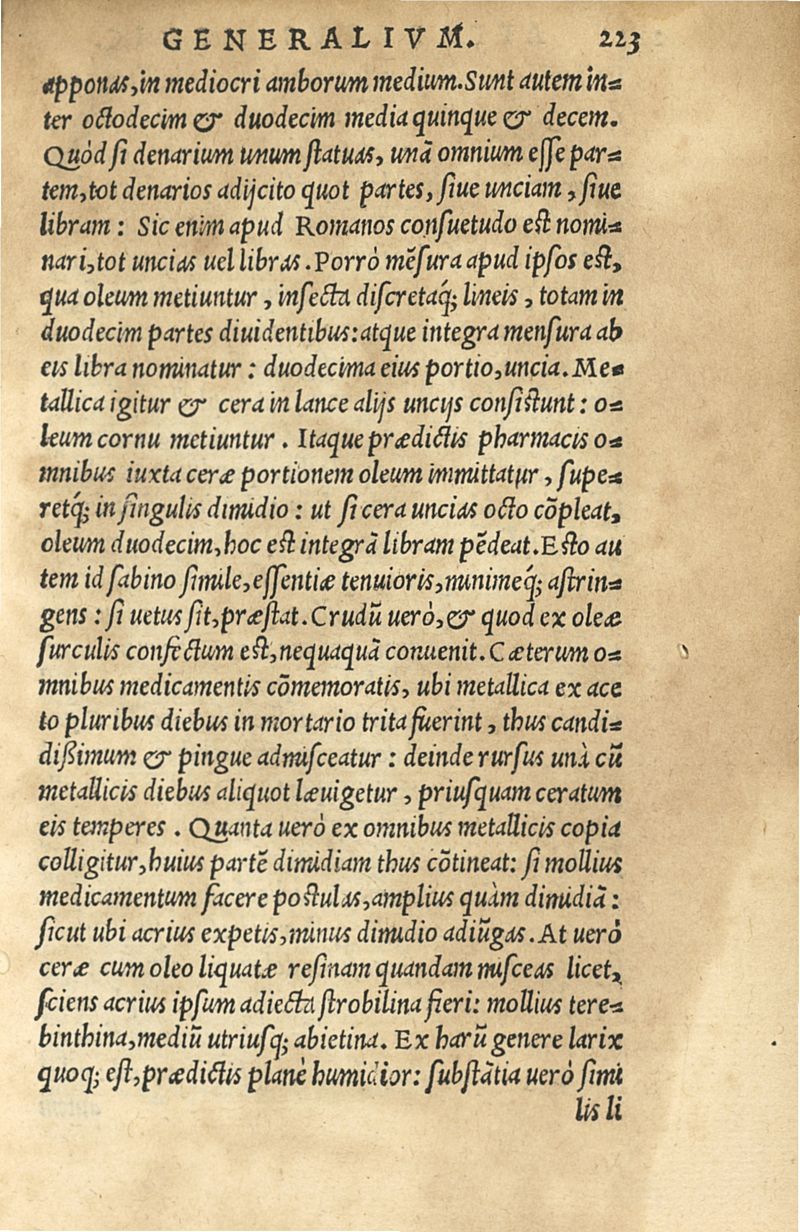 GENERALIVM. 223
apponas, in mediocri amborum medium. Sunt autem in=
ter octodecim & duodecim media quinque & decem.
Quòd si denarium unum statuas, unã omnium esse par=
tem, tot denarios adijcito quot partes, siue unciam, siue
libram: Sic enim apud Romanos consuetudo est nomi=
nari, tot uncias uel libras. Porrò mẽsura apud ipsos est,
qua oleum metiuntur, insecta discretaq́; lineis, totam in
duodecim partes diuidentibus: atque integra mensura ab
eis libra nominatur: duodecima eius portio, uncia. Me=
tallica igitur & cera in lance alijs uncijs consistunt: o=
leum cornu metiuntur. Itaque prædictis pharmacis o=
mnibus iuxta ceræ portionem oleum immittatur, supe=
retq́; in singulis dimidio: ut si cera uncias octo cõpleat,
oleum duodecim, hoc est integrã libram pẽdeat. Esto au
tem id sabino simile, essentiæ tenuioris, minimeq́; astrin=
gens: si uetus sit, præstat. Crudũ uerò, & quod ex oleæ
surculis confectum est, nequaquã conuenit. Cæterum o=
mnibus medicamentis cõmemoratis, ubi metallica ex ace
to pluribus diebus in mortario trita fuerint, thus candi=
dißimum & pingue admisceatur: deinde rursus unà cũ
metallicis diebus aliquot læuigetur, priusquam ceratum
eis temperes. Quanta uerò ex omnibus metallicis copia
colligitur, huius partẽ dimidiam thus cõtineat: si mollius
medicamentum facere postulas, amplius quàm dimidiã:
sicut ubi acrius expetis, minus dimidio adiũgas. At uerò
ceræ cum oleo liquatæ resinam quandam misceas licet,
sciens acrius ipsum adiecta strobilina fieri: mollius tere=
binthina, mediũ utriusq; abietina. Ex harũ genere larix
quoq; est, prædictis planè humidior: substãtia uerò simi
lis li